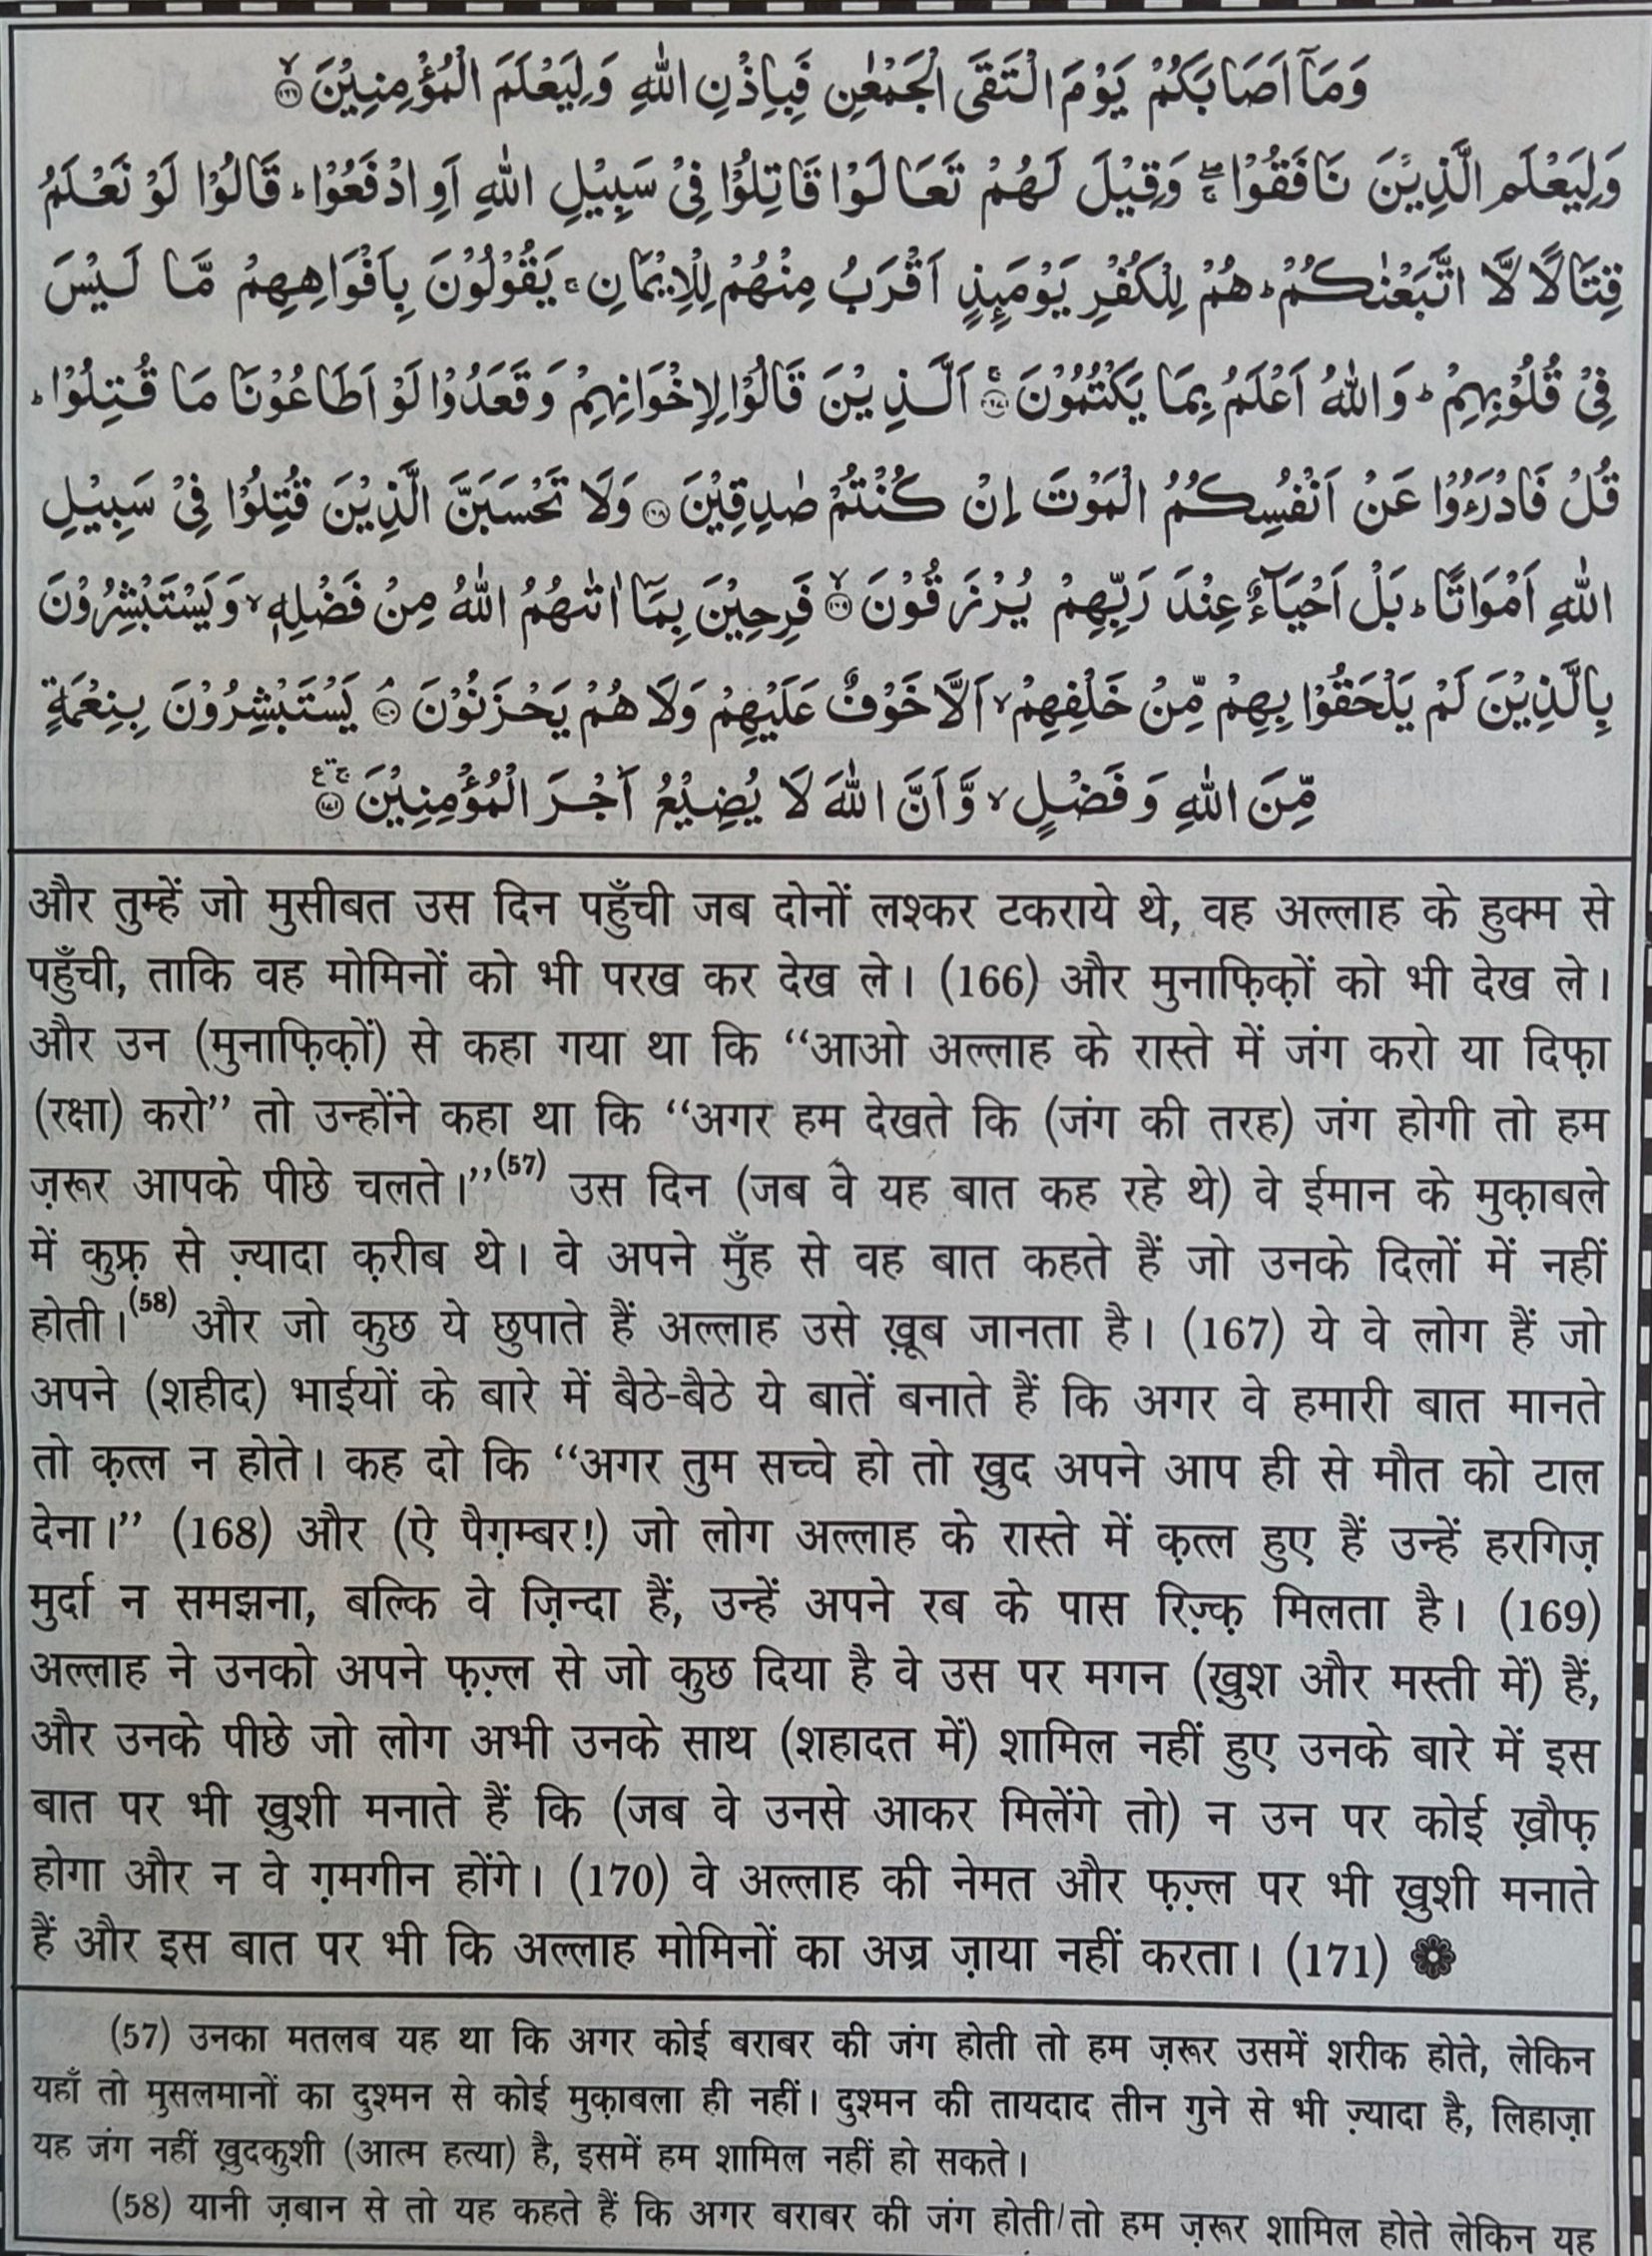 وَمَآ اَصَابَكُمْ يَوْمَ الْتَقَى الْجَمْعٰنِ فَبِاِذْنِ اللّٰهِ وَلِيَعْلَمَ الْمُؤْمِنِيْنَ ۙ‏﴿۱۶۶﴾
وَلِيَعْلَمَ الَّذِيْنَ نَافَقُوْا ۖۚ وَقِيْلَ لَهُمْ تَعَالَوْا قَاتِلُوْا فِيْ سَبِيْلِ اللّٰهِ اَوِ ادْفَعُوْا ؕ قَالُوْا لَوْ نَعْلَمُ
قِتَالًا لَّا اتَّبَعْنٰكُمْ ؕ هُمْ لِلْكُفْرِ يَوْمَىِٕذٍ اَقْرَبُ مِنْهُمْ لِلْاِيْمَانِ ۚ يَقُوْلُوْنَ بِاَفْوَاهِهِمْ مَّا لَيْسَ
فِيْ قُلُوْبِهِمْ ؕ وَاللّٰهُ اَعْلَمُ بِمَا يَكْتُمُوْنَ ۚ﴿۱۶۷﴾ اَلَّذِيْنَ قَالُوْا لِاِخْوَانِهِمْ وَقَعَدُوْا لَوْ اَطَاعُوْنَا مَا قُتِلُوْا ؕ
قُلْ فَادْرَءُوْا عَنْ اَنْفُسِكُمُ الْمَوْتَ اِنْ كُنْتُمْ صٰدِقِيْنَ ﴿۱۶۸﴾ وَلَا تَحْسَبَنَّ الَّذِيْنَ قُتِلُوْا فِيْ سَبِيْلِ
اللّٰهِ اَمْوَاتًا ؕ بَلْ اَحْيَآءٌ عِنْدَ رَبِّهِمْ يُرْزَقُوْنَ ۙ﴿۱۶۹﴾ فَرِحِيْنَ بِمَآ اٰتٰىهُمُ اللّٰهُ مِنْ فَضْلِهٖ ۙ وَيَسْتَبْشِرُوْنَ
بِالَّذِيْنَ لَمْ يَلْحَقُوْا بِهِمْ مِّنْ خَلْفِهِمْ ۙ اَلَّا خَوْفٌ عَلَيْهِمْ وَلَا هُمْ يَحْزَنُوْنَ ۘ﴿۱۷۰﴾ يَسْتَبْشِرُوْنَ بِنِعْمَةٍ
مِّنَ اللّٰهِ وَفَضْلٍ ۙ وَّاَنَّ اللّٰهَ لَا يُضِيْعُ اَجْرَ الْمُؤْمِنِيْنَ ﴿۱۷۱﴾
और तुम्हें जो मुसीबत उस दिन पहुँची जब दोनों लश्कर टकराये थे, वह अल्लाह के हुक्म से
पहुँची, ताकि वह मोमिनों को भी परख कर देख ले। (166) और मुनाफ़िक़ों को भी देख ले।
और उन (मुनाफ़िक़ों) से कहा गया था कि “आओ अल्लाह के रास्ते में जंग करो या दिफ़ा
(रक्षा) करो” तो उन्होंने कहा था कि “अगर हम देखते कि (जंग की तरह) जंग होगी तो हम
ज़रूर आपके पीछे चलते।”(57) उस दिन (जब वे यह बात कह रहे थे) वे ईमान के मुक़ाबले
में कुफ़्र से ज़्यादा क़रीब थे। वे अपने मुँह से वह बात कहते हैं जो उनके दिलों में नहीं
होती।(58) और जो कुछ ये छुपाते हैं अल्लाह उसे ख़ूब जानता है। (167) ये वे लोग हैं जो
अपने (शहीद) भाईयों के बारे में बैठे-बैठे ये बातें बनाते हैं कि अगर वे हमारी बात मानते
तो क़त्ल न होते। कह दो कि “अगर तुम सच्चे हो तो ख़ुद अपने आप ही से मौत को टाल
देना।” (168) और (ऐ पैग़म्बर!) जो लोग अल्लाह के रास्ते में क़त्ल हुए हैं उन्हें हरगिज़
मुर्दा न समझना, बल्कि वे ज़िन्दा हैं, उन्हें अपने रब के पास रिज़्क़ मिलता है। (169)
अल्लाह ने उनको अपने फ़ज़्ल से जो कुछ दिया है वे उस पर मगन (ख़ुश और मस्ती में) हैं,
और उनके पीछे जो लोग अभी उनके साथ (शहादत में) शामिल नहीं हुए उनके बारे में इस
बात पर भी ख़ुशी मनाते हैं कि (जब वे उनसे आकर मिलेंगे तो) न उन पर कोई ख़ौफ़
होगा और न वे ग़मगीन होंगे। (170) वे अल्लाह की नेमत और फ़ज़्ल पर भी ख़ुशी मनाते
हैं और इस बात पर भी कि अल्लाह मोमिनों का अज्र ज़ाया नहीं करता। (171)
(57) उनका मतलब यह था कि अगर कोई बराबर की जंग होती तो हम ज़रूर उसमें शरीक होते, लेकिन
यहाँ तो मुसलमानों का दुश्मन से कोई मुक़ाबला ही नहीं। दुश्मन की तायदाद तीन गुने से भी ज़्यादा है, लिहाज़ा
यह जंग नहीं ख़ुदकुशी (आत्म हत्या) है, इसमें हम शामिल नहीं हो सकते।
(58) यानी ज़बान से तो यह कहते हैं कि अगर बराबर की जंग होती तो हम ज़रूर शामिल होते लेकिन यह